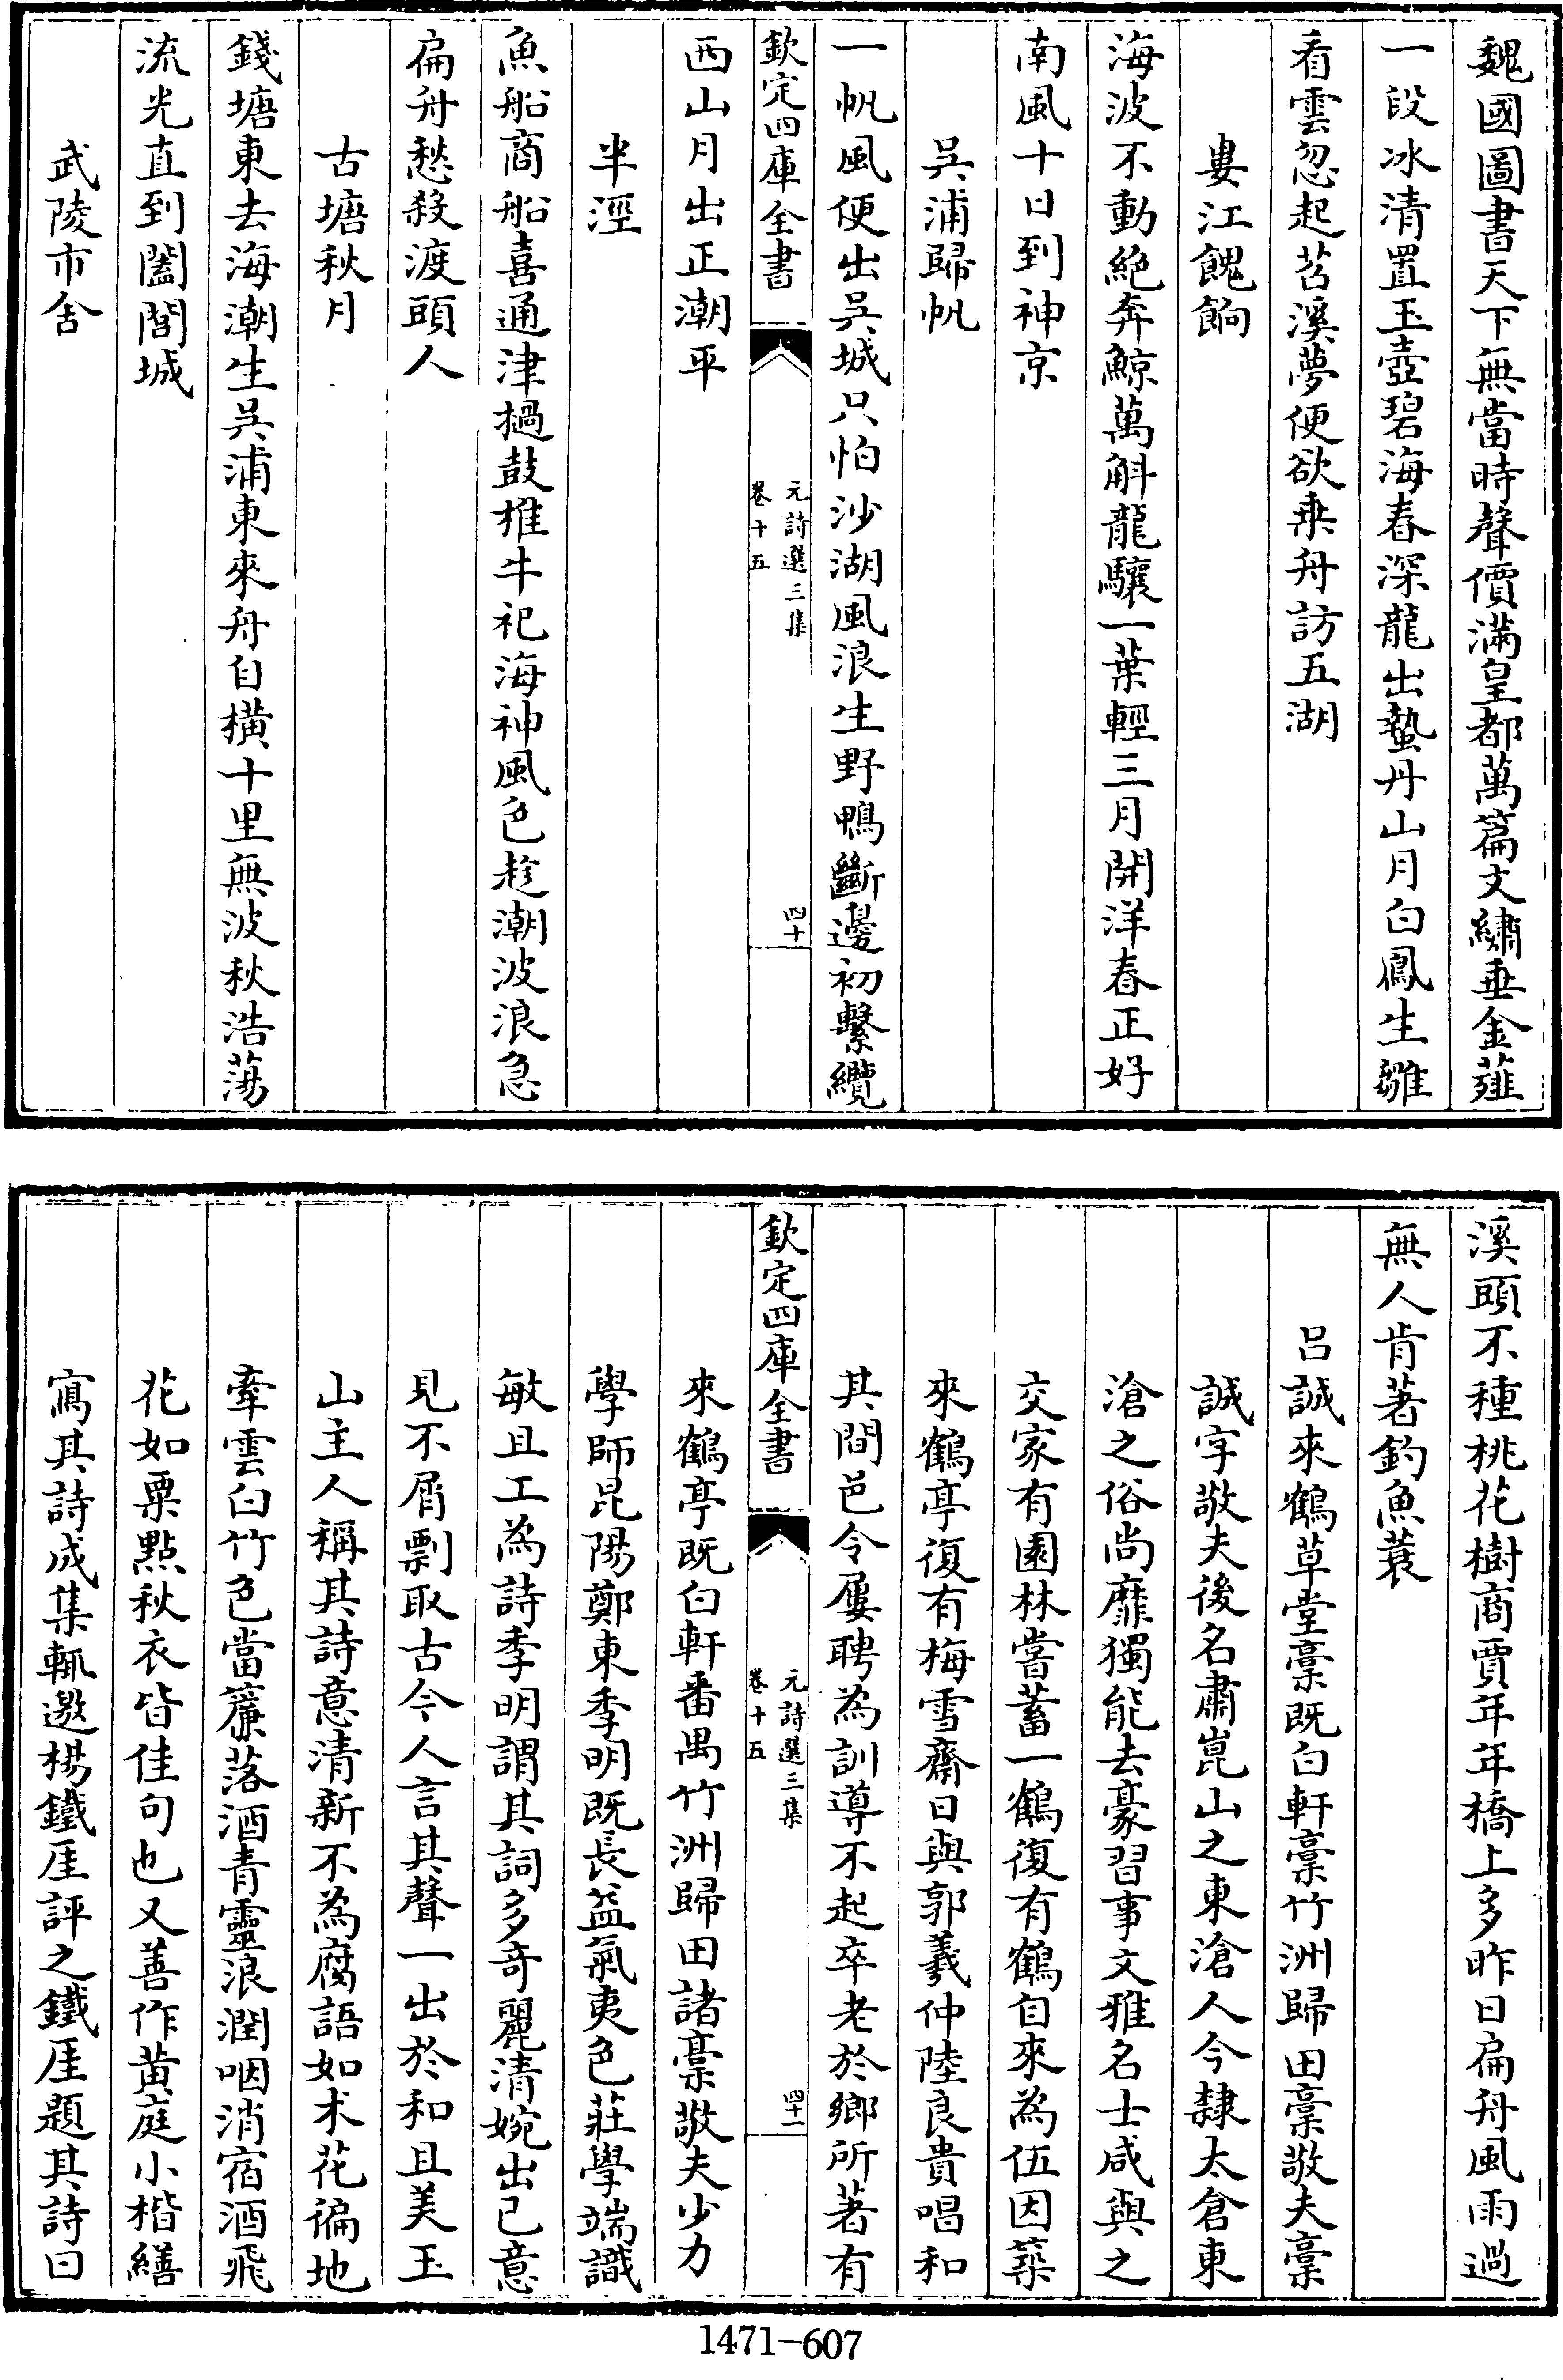 魏國圖書天下無當時聲價滿皇都萬篇文繡垂金薤
一段冰清置玉壺碧海春深龍出蟄丹山月白鳳生雛
看雲忽起苕溪夢便欲乗舟訪五湖
婁江餽餉
海波不動絶奔鯨萬斛龍驤一葉輕三月開洋春正好
南風十日到神京
吳浦歸帆
一帆風便出吳城只怕沙湖風浪生野鴨斷邊初繫纜
欽定四庫全書
元詩選三集
卷十五
四十
西山月出正潮平
半涇
魚船商船喜通津撾鼓椎牛祀海神風色趁潮波浪急
扁舟愁殺渡頭人
古塘秋月
錢塘東去海潮生吳浦東來舟自橫十里無波秋浩蕩
流光直到闔閭城
武陵市舍
溪頭不種桃花樹商賈年年橋上多昨日扁舟風雨過
無人肯著釣魚蓑
吕誠來鶴草堂稾既白軒稾竹洲歸田稾敬夫稾
誠字敬夫後名肅崑山之東滄人今隸太倉東
滄之俗尚靡獨能去豪習事文雅名士咸與之
交家有園林嘗蓄一鶴復有鶴自來為伍因築
來鶴亭復有梅雪齋日與郭羲仲陸良貴唱和
其間邑令屢聘為訓導不起卒老於鄉所著有
欽定四庫全書
元詩選三集
卷十五
四十一
來鶴亭既白軒番禺竹洲歸田諸稾敬夫少力
學師昆陽鄭東季明既長益氣夷色莊學端識
敏且工為詩季明謂其詞多奇麗清婉出已意
見不屑剽取古今人言其聲一出於和且美玉
山主人稱其詩意清新不為腐語如术花徧地
牽雲白竹色當簾落酒青靈浪潤咽消宿酒飛
花如粟點秋衣皆佳句也又善作黄庭小楷繕
寫其詩成集輒邀楊鐵厓評之鐵厓題其詩曰
1471-607